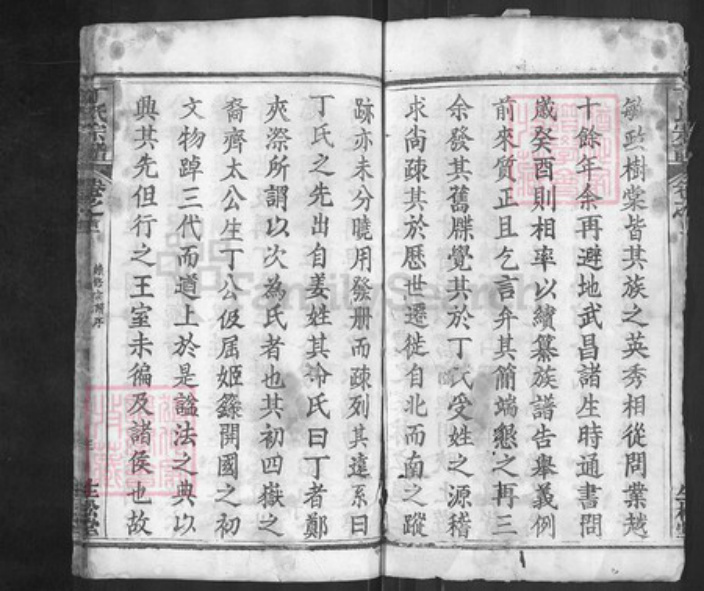 敏政樹棠皆其族之英秀相從問業越
十餘年余再避地武昌諸生時通書問
歲癸酉則相率以續纂族譜告舉義例
前來質正且乞言弁其簡端懇之再三
余發其舊牒覺其於丁氏受姓之源稽
求尚疎其於歷世遷徙自北而南之蹤
跡亦未分曉用發册而疎列其遠系曰
丁氏之先出自姜姓其冷氏曰丁者鄭
夾漈所謂以次為氏者也其初四嶽之
裔齊太公生丁公伋屆姬籙開國之初
文物踔三代而遒上於是謚法之典以
興其先但行之王室未徧及諸侯也故
丁氏宗譜
卷之
FamilySearch